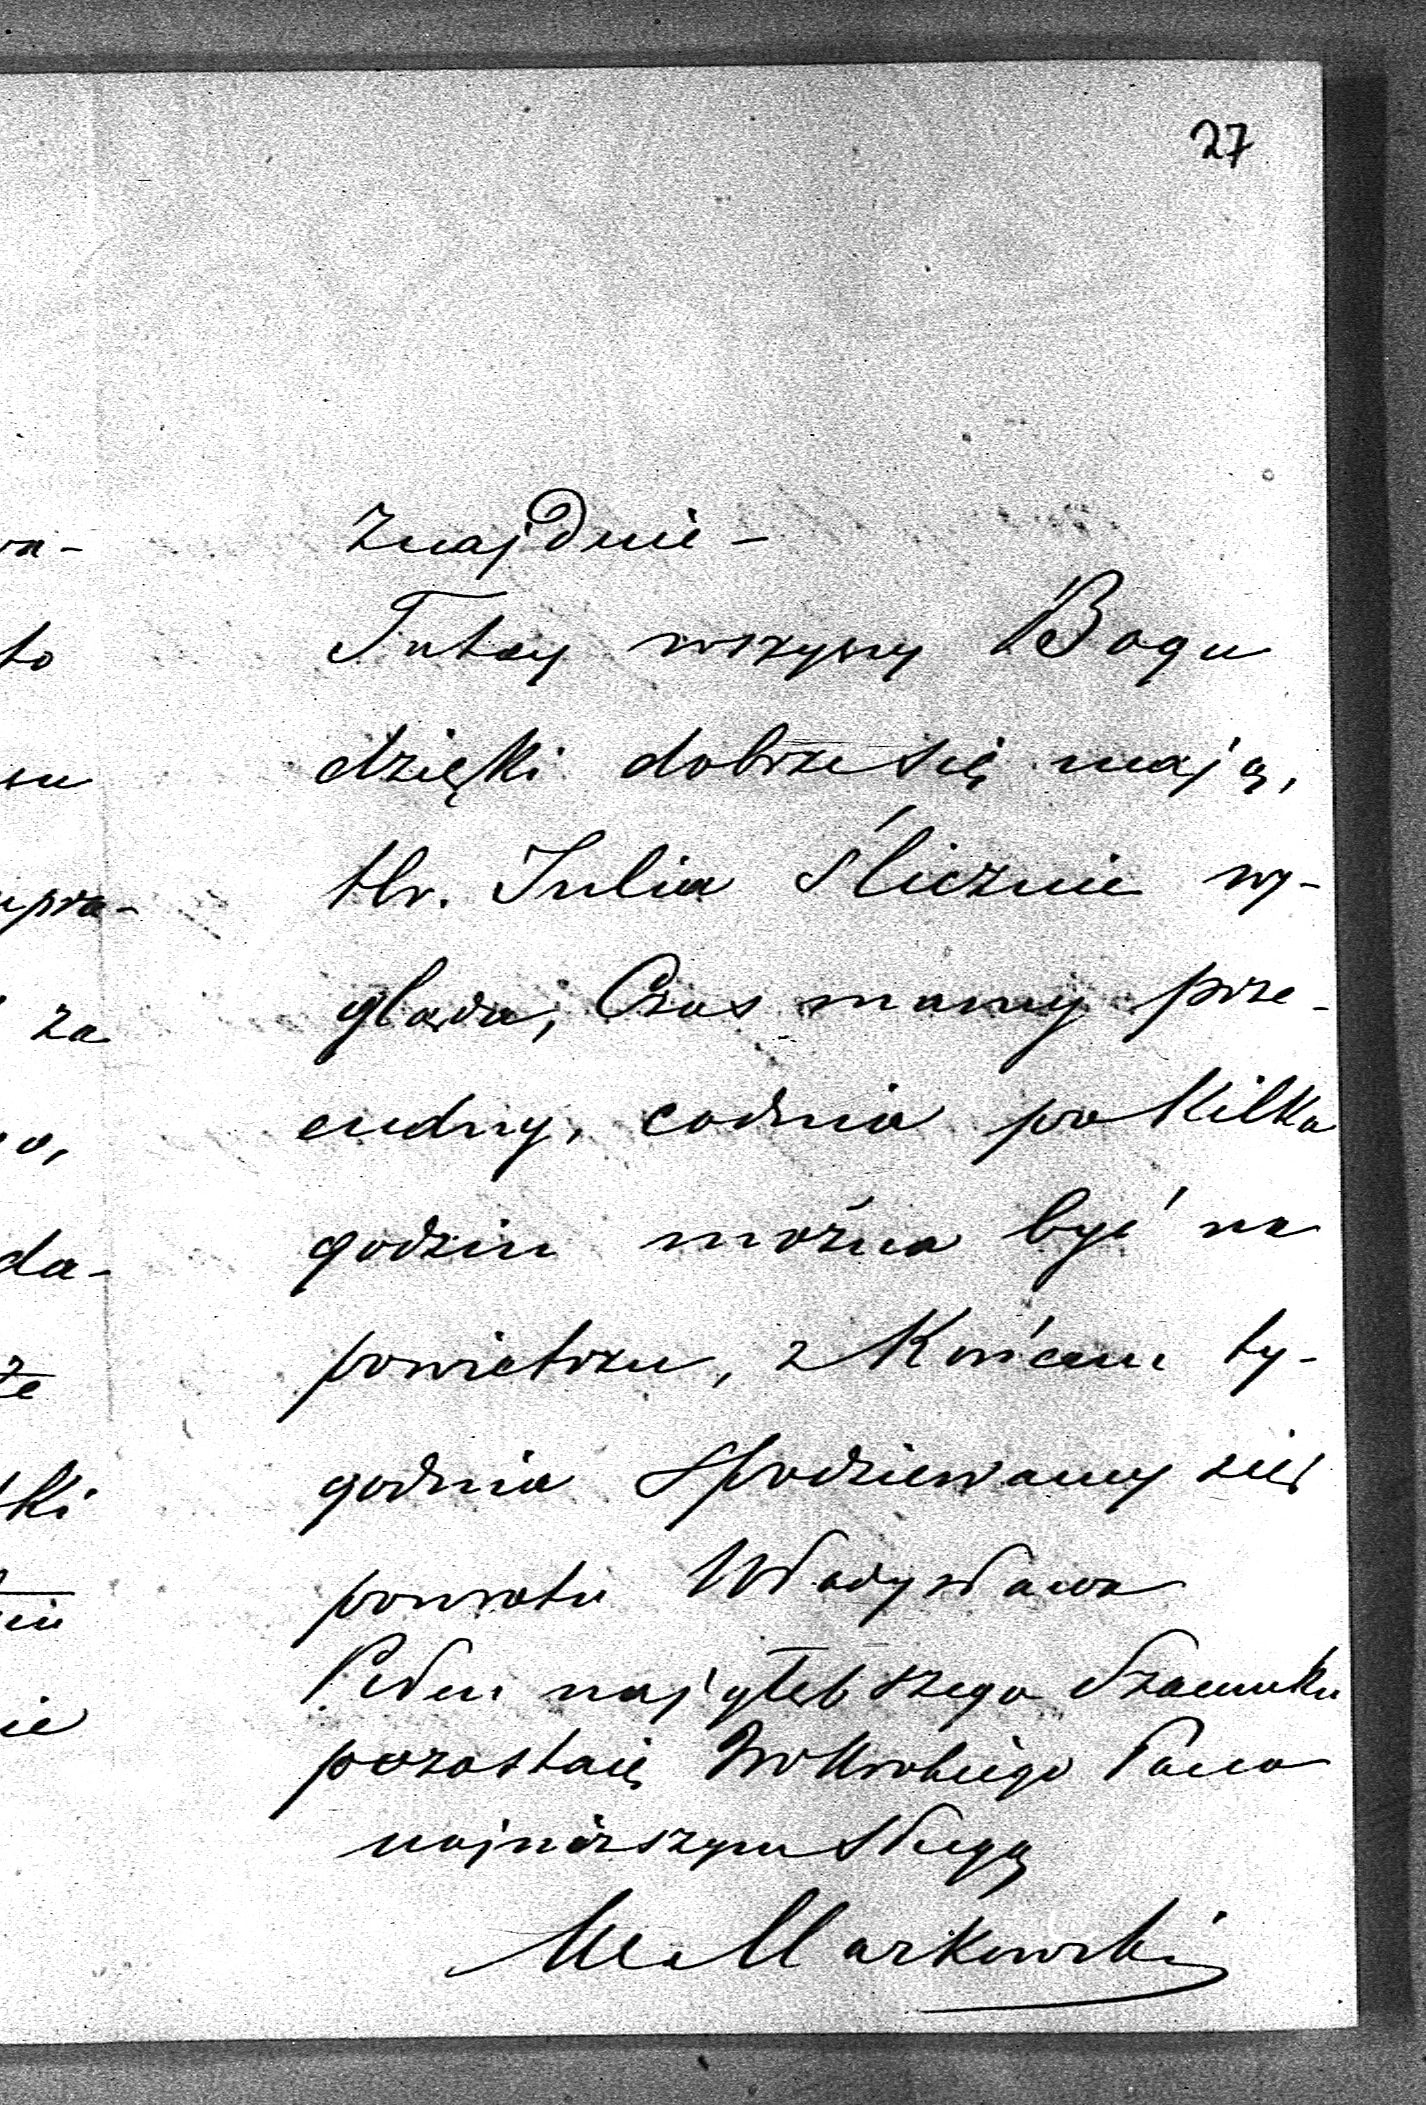 27
znajduie –
Tutay wszyscy Bogu
dzięki dobrze się mają,
Hr. Julia ślicznie wy-
gląda, Czas mamy prze-
cudny, codnia po kilka
godzin można być na
powietrzu, z końcem ty-
godnia spodziewamy się
powrotu Władysława
Pełen najgłębszego szacunku
pozostaię Pana
najniższym sługą
Markowski
va-
to
su
upra-
za
o,
da-
że
ki
nie
ie